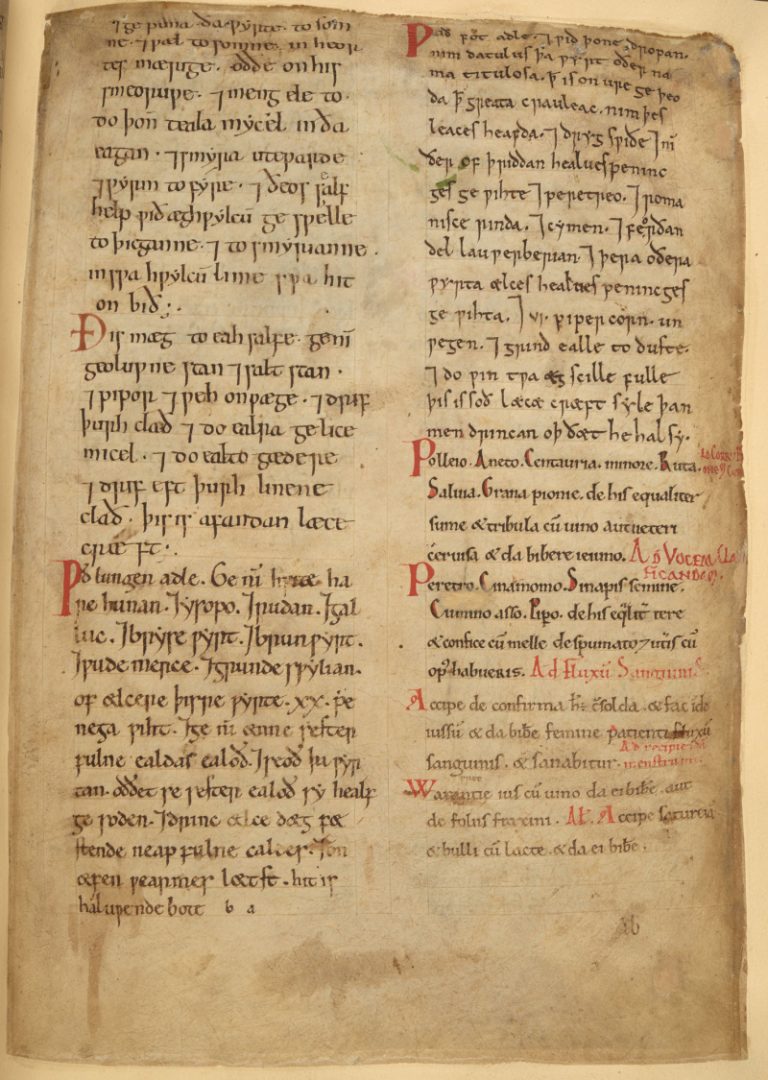 ⁊ ge puna ða ƿyrte to som
ne. ⁊ ƿal to somne in heor
tes mæruge. oððe on his
smeoruƿe. ⁊ meng ele to.
do þoñ teala mycel in ða
eagan. ⁊ smyra uteƿarde
⁊ ƿyrm to fyre. ⁊ ðeos salf
help ƿið æghƿylcū ge spelle
to þicganne. ⁊ to smyruanne.
in sƿa hƿylcū lime sƿa hit
on bið;
Ðis mæg to eah salfe. genī
geoluƿne stan ⁊ salt stan.
⁊ pipor ⁊ ƿeh on ƿæge. ⁊ drif
þurh clað ⁊ do ealra gelice
micel. ⁊ do eal to gædere
⁊ drif eft þurh linene
clað. þis is afandan læce
cræft;
Ƿið lungen adle. Ge nī ha
ne hunan. ⁊ ysopo. ⁊ rudan. ⁊ gal
luc. ⁊ bryseƿyrt. ⁊ brunƿyrt.
⁊ ƿude merce. ⁊ grundesƿylian.
of ælcere þisse ƿyrte. xx. ƿe
nega ƿiht. ⁊ ge nī ænne sester
fulne ealdas ealoð. ⁊ seoð þa ƿyr
tan. oððet se sester ealoð sy healf
ge soden. ⁊ drinc ælce dæg fæ
stende neap fulne caldes. ⁊ on
æfen ƿearmes lætst. hit is
halƿende bote b a
Ƿið fot adle. ⁊ ƿið þone dropan.
nim datulus þa ƿyrt oðer na
ma titulosa. ꝥ is on ure geþeo
da ꝥ greata crauleac. nim þes
leaces heafda. ⁊ dryg sƿiðe ⁊ nī
ðer of þriddan healues peninc
ges ge ƿihte ⁊ peretreo. ⁊ roma
nisce rinda. ⁊ cymen. ⁊ feorðan
del lauƿerberian. ⁊ þera oðera
ƿyrta ælces healues penincges
ge ƿihta. ⁊ vi. piper corn. un
ƿegen. ⁊ grind ealle to dufte.
⁊ do ƿin tƿa æg scille fulle
þis is soð læcæ cræft syle þan
men drincan oþ ðæt he hal sy.
Polleio. Aneto. Centauria. minore. Ruta.
Saluia. Grana pionie. de his equaliter
sume & tribula cū uino aut ueteri
ceruisa & da bibere ieiuno. Ad Vocem Cla
rificandam.
Peretro. Cinamomo. Sinapis semine.
Cumino asso. Pipo. de his eq̄lit̄ tere
& confice cū melle despumato ⁊ utis cū
op; habueris. Ad Fluxū Sanguinis
Accipe de confirma. & fac ide
iussū & da bibē femine patienti fluxū
sanguinis. & sanabitur. Ad recipienda
menstrua.
Warantie ius cū uino da ei bibē. aut
de foliis fraxini. Al. Accipe satureia
& bulli cū lacte. & da ei bibē.